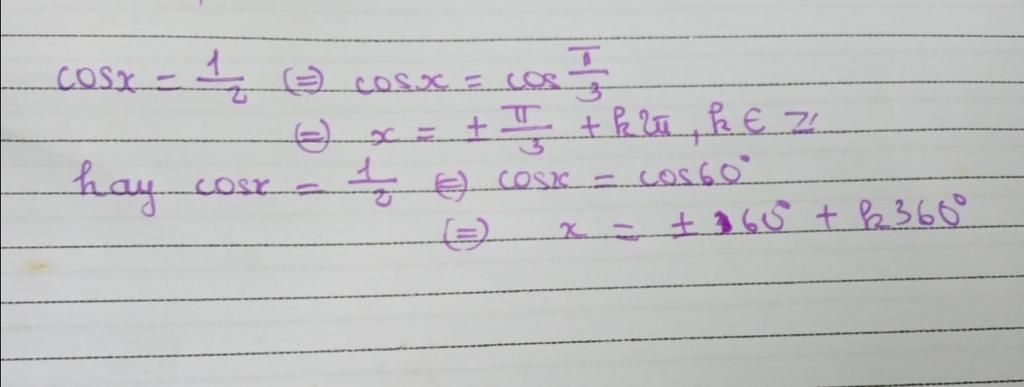 cosx = 1/2 (=) cosx = cos π/3
(=) x = ± π/3 + k2π, k ∈ Z
hay cosx = 1/2 (=) cosx = cos60°
(=) x = ± 60° + k360°